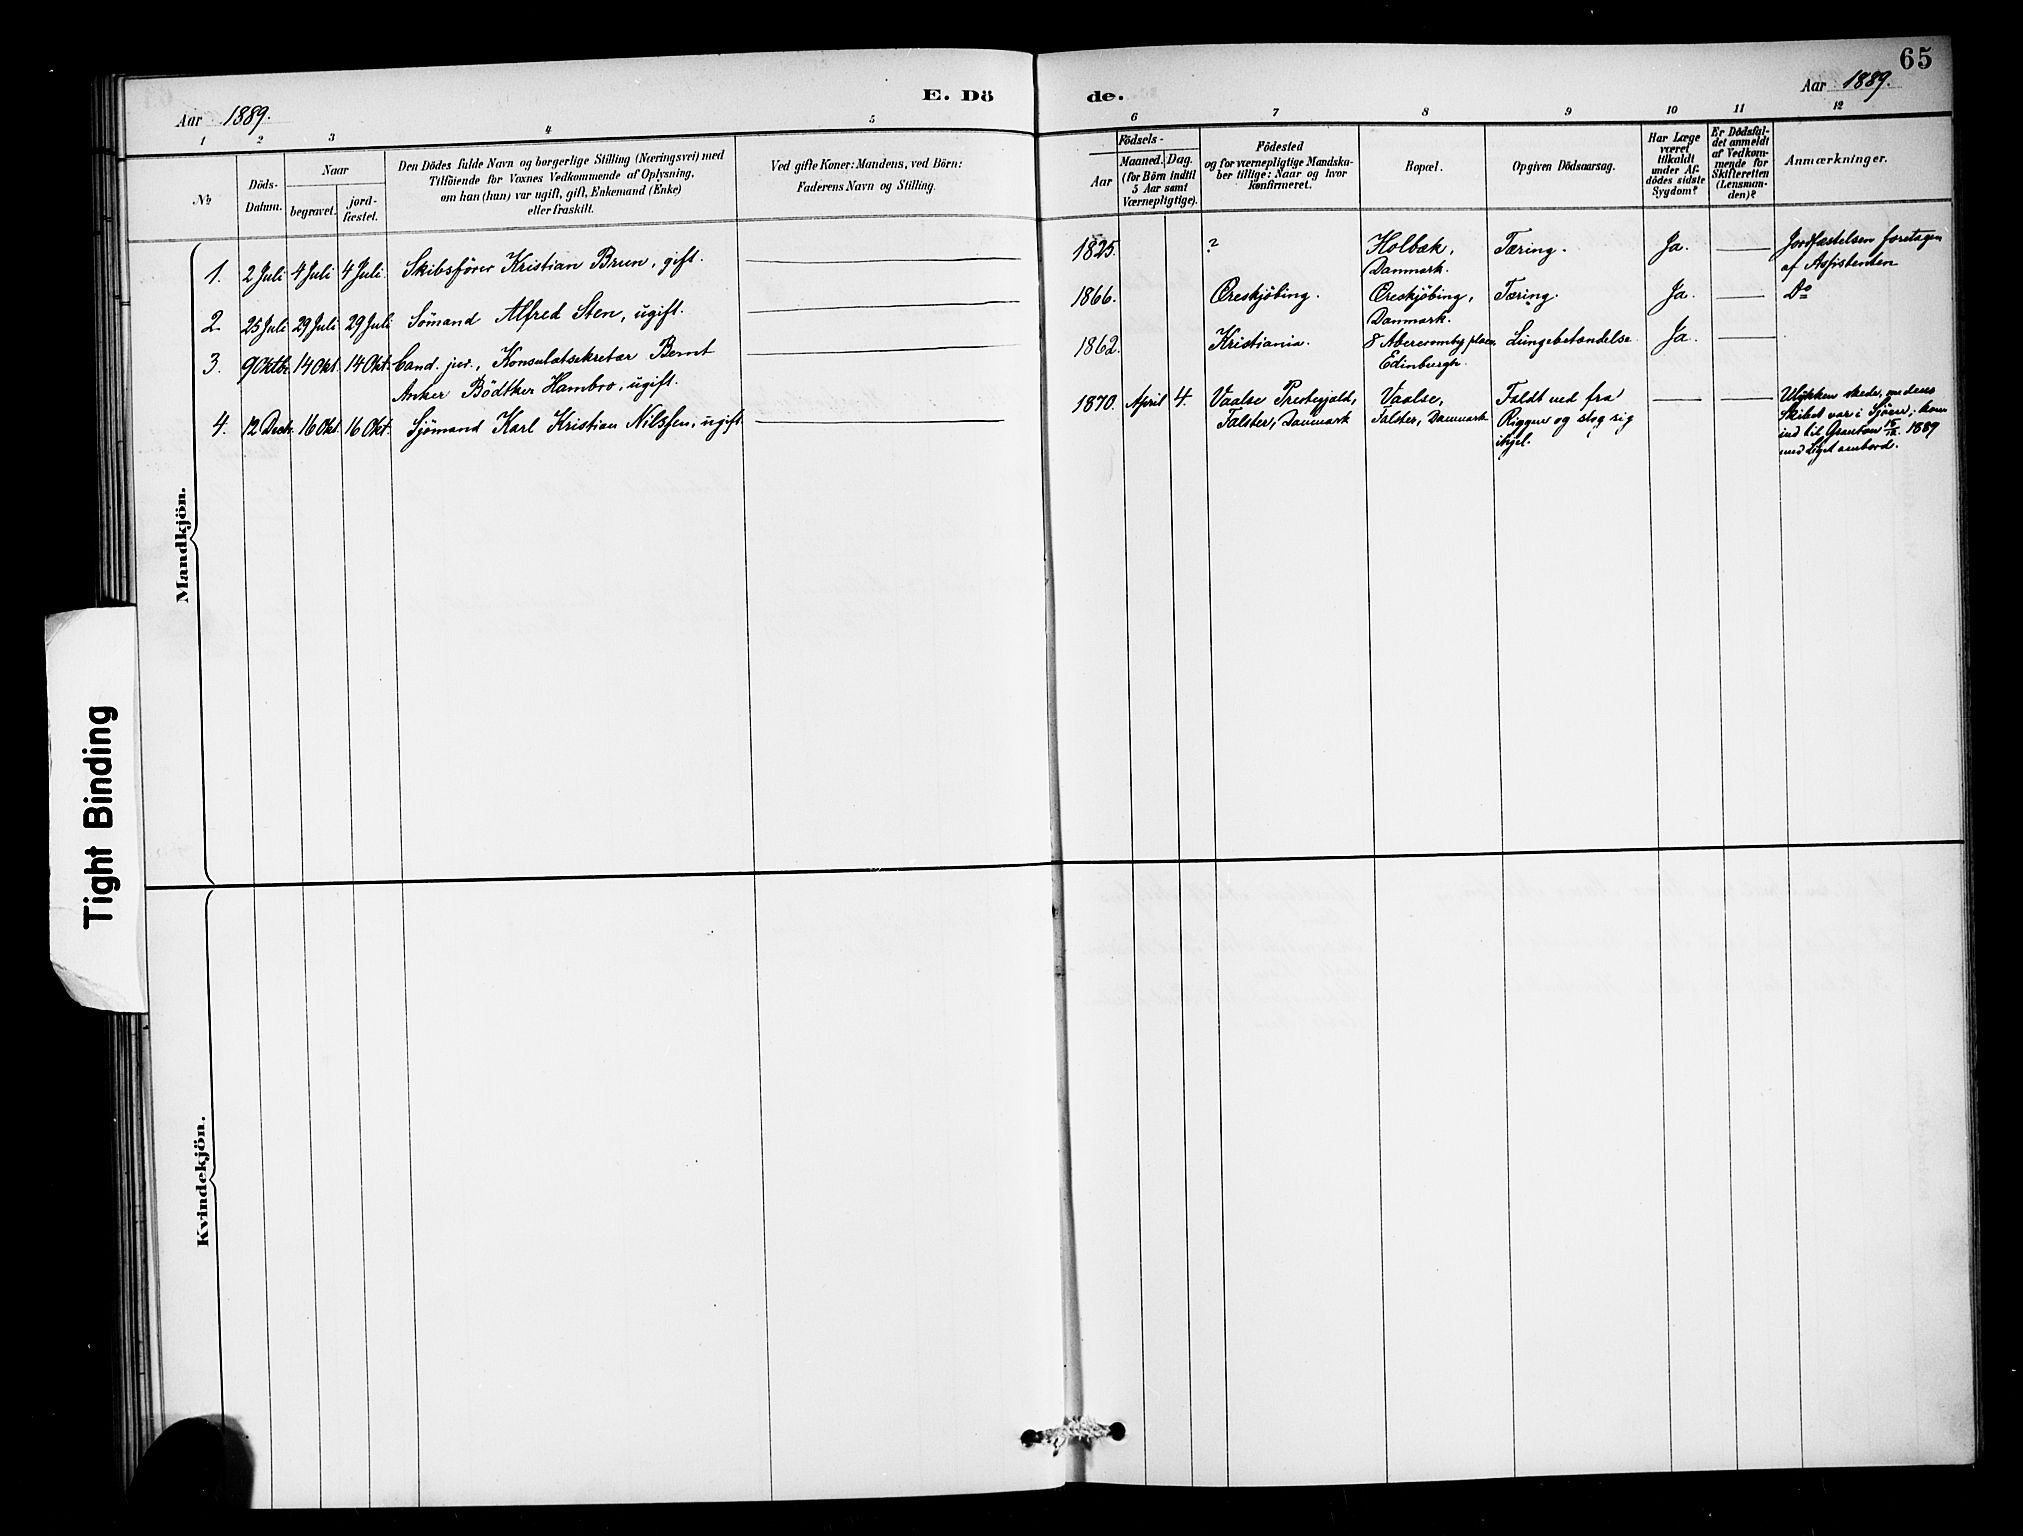 65
Aar 1889.
E. Dö de.
Aar 1889.
1 2 3 4 5 6 7 8 9 10 11 12
№
Döds-
Datum.
Naar
begravet.
jord-
fæstet.
Den Dödes fulde Navn og borgerlige Stilling (Næringsvei) med
Tilföiende for Voxnes Vedkommende af Oplysning,
om han (hun) var ugift, gift, Enkemand (Enke)
eller fraskilt.
Ved gifte Koner: Mandens, ved Börn:
Faderens Navn og Stilling.
Födsels-
Aar
Maaned. Dag.
(for Börn indtil
5 Aar samt
Værnepligtige).
Födested
og for værnepligtige Mandska-
ber tillige: Naar og hvor
konfirmeret.
Bopæl.
Opgiven Dödsaarsag.
Har Læge
været
tilkaldt
under Af-
dödes sidste
Sygdom?
Er Dödsfal-
det anmeldt
af Vedkom-
mende for
Skifteretten
(Lensman-
den)?
Anmærkninger.
Mandkjön.
1. 2 Juli 4 Juli 4 Juli Skibsfører Kristian Brun, gift. 1825. ? Holbæk, Tæring. Ja. Jordfæstelsen foretagen
Danmark. af Assistenten
2. 25 Juli 29 Juli 29 Juli Sömand Alfred Sten, ugift. 1866. Øreskjöbing. Øreskjöbing, Tæring. Ja. Do
Danmark.
3. 9 Oktbr. 14 Okt. 14 Okt. Cand. jur., Konsulatsekretær Bernt 1862. Kristiania. 8 Abercromby place, Lungebetændelse. Ja.
Anker Bödtker Hambro, ugift. Edinburgh.
4. 12 Decb. 16 Okt. 16 Okt. Sjömand Karl Kristian Nilssen, ugift. 1870. April 4. Vaalse Prestegjæld, Vaalse, Faldt ned fra Ulykken skede, medens
Falster, Danmark Falster, Danmark Riggen og slog sig Skibet var i Sjöen; kom
ihjel. ind til Granton 15/12 1889
med Liget ombord.
Kvindekjön.
Tight Binding